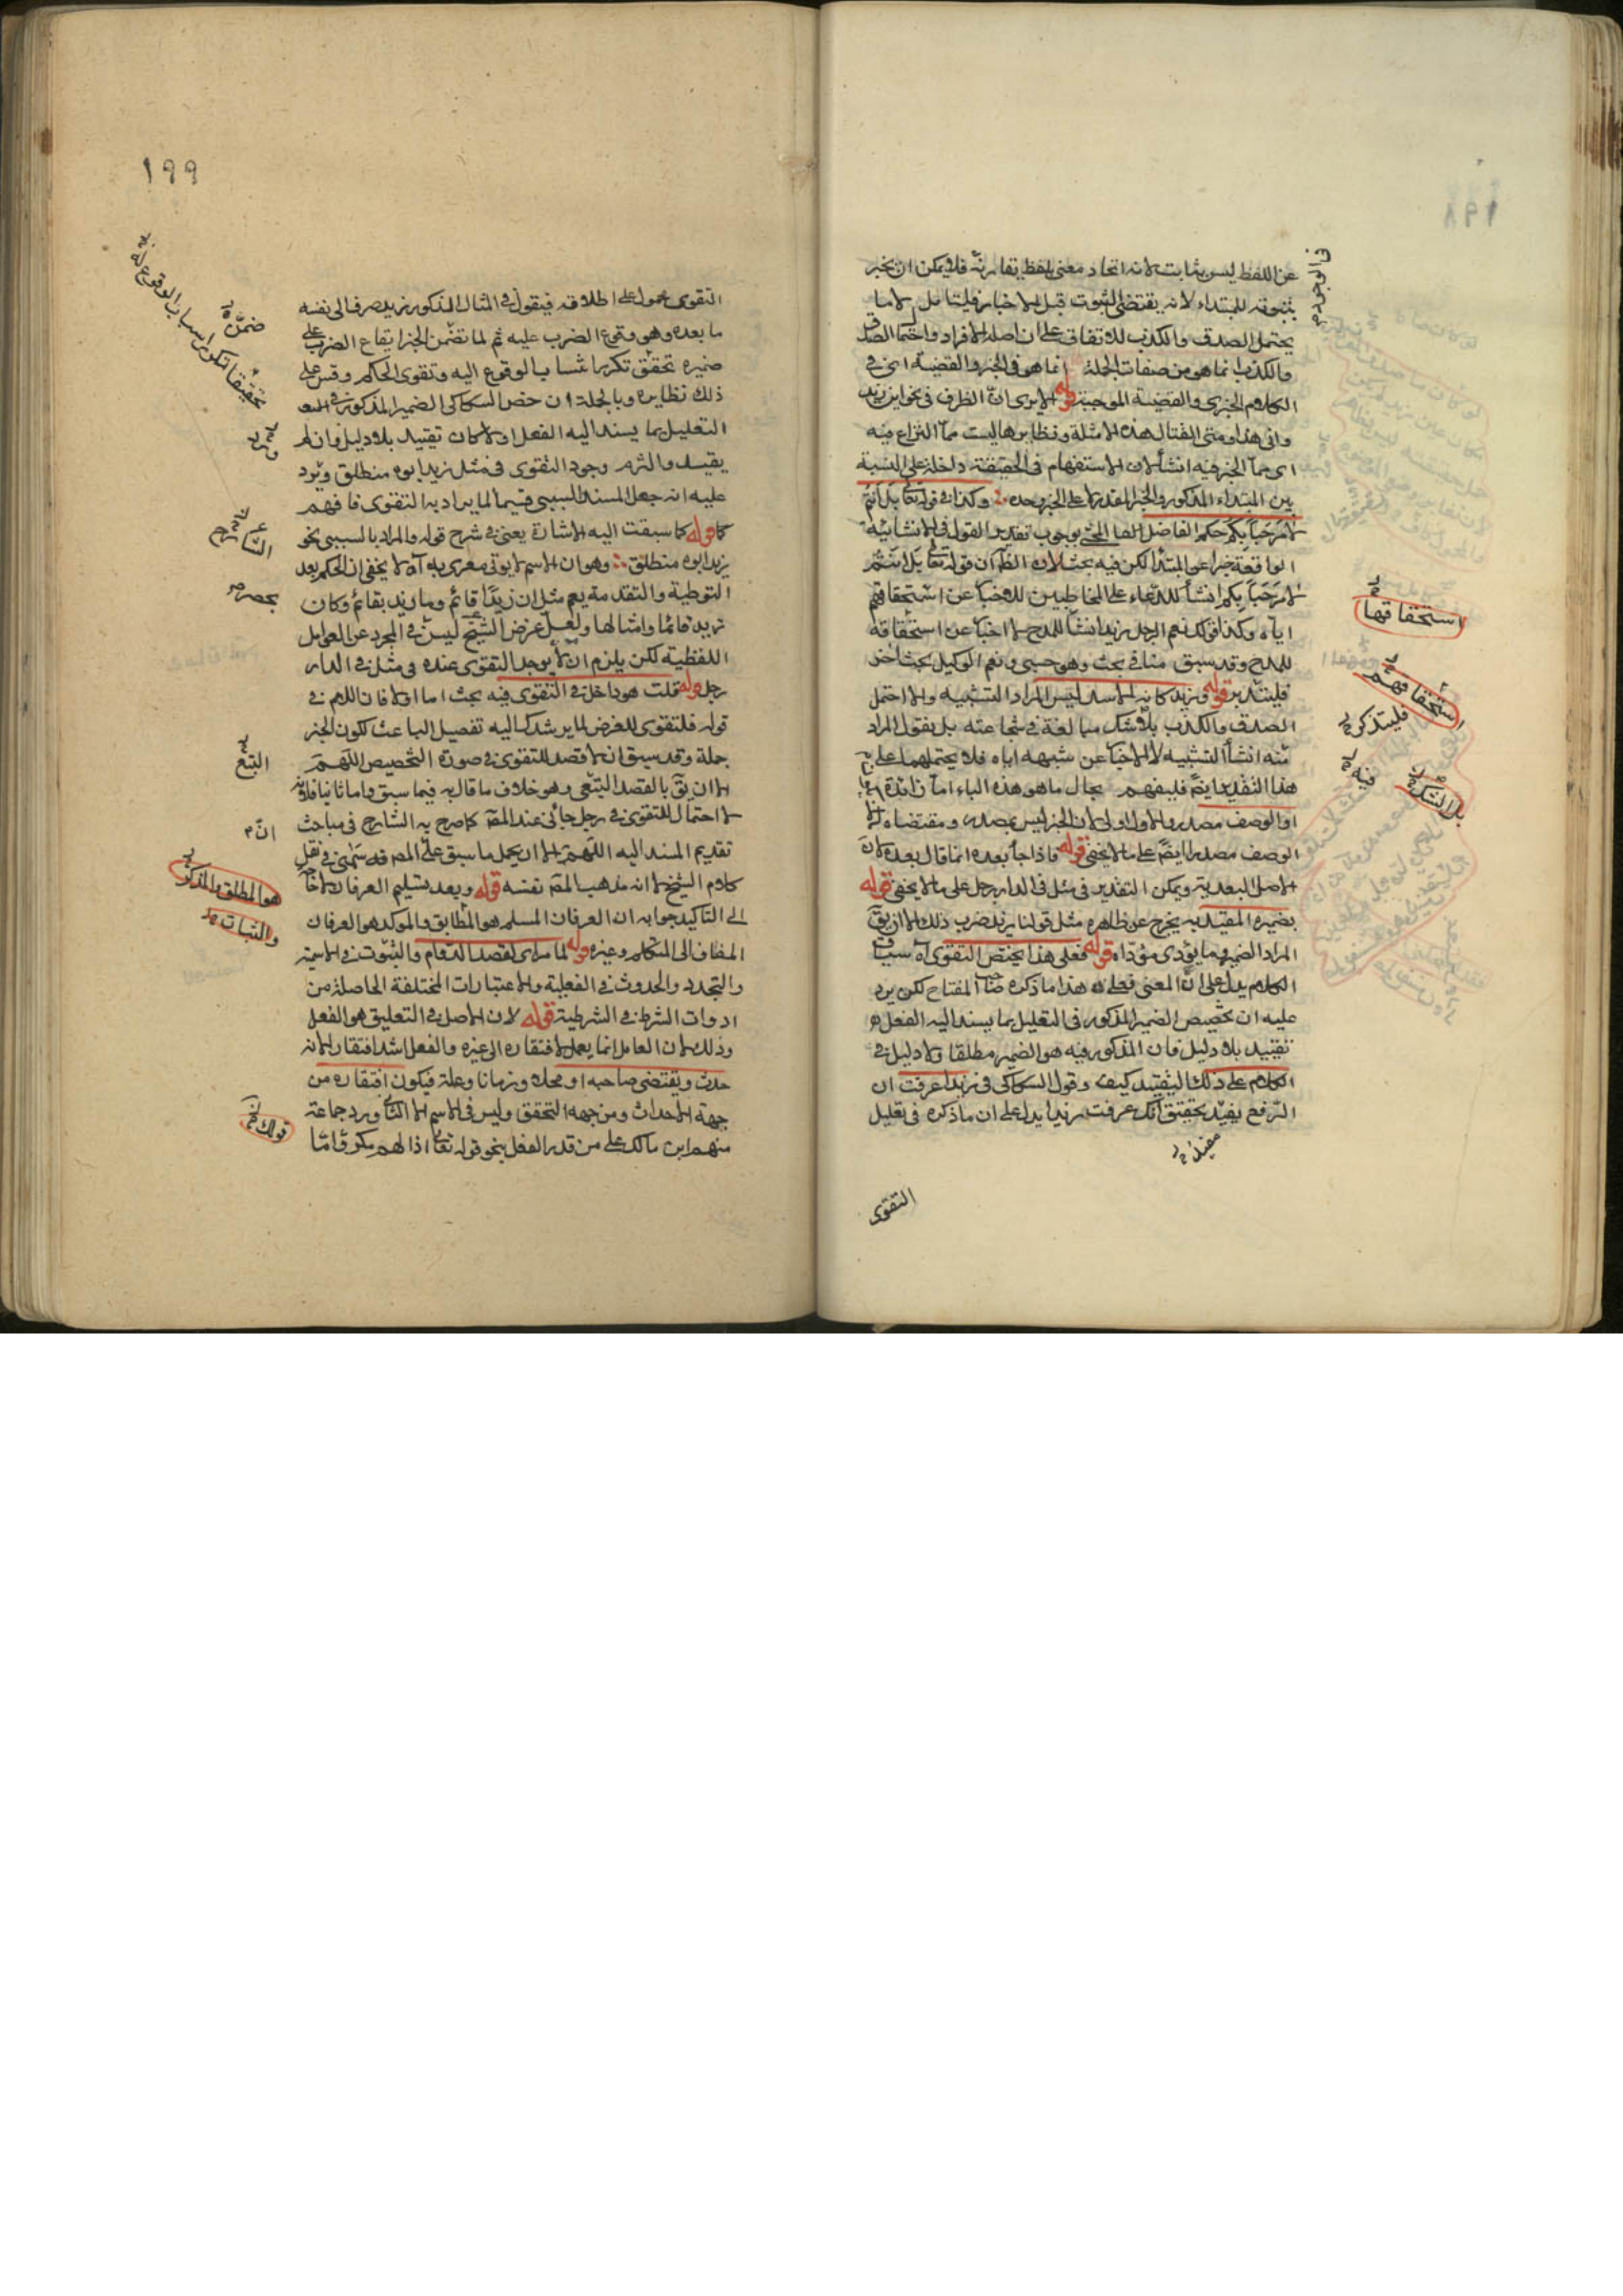 ١٩٨
عن اللفظ ليس بثابت لانه اتحاد معنى بلفظ تقارنه فلا يمكن ان يخبر
بثبوته للمبتداء لانه يقتضى الثبوت قبل الاخبار فليتامل لا ما
يحتمل الصدق والكذب للاتفاق على ان اصله الافراد واحتمال الصدق
والكذب انما هو من صفات الجملة انما هو فى الخبر والقضية اى فى
الكلام الخبرى والقضية الموجبة قوله الا يرى ان الظرف فى نحو اين زيد
وانى هذا ومتى القتال هذه الامثلة ونظايرها ليست مما النزاع فيه
اى مما الخبر فيه انشأ لان الاستفهام فى الحقيقة داخلة على النسبة
بين المبتداء المذكور والخبر المقدر لا على الخبر وحده وكذا فى قوله تعا بل انتم
لا مرحبا بكم حكم الفاضل المحشى بوجوب تقدير القول فى الانشائية
الواقعة خبرا عن المبتدا لكن فيه بحث لان الظ ان قوله تعا بل انتم
لا مرحبا بكم انشأ للدعاء على المخاطبين لا اخبا عن استحقاقهم
اياه وكذا قولك نعم الرجل زيد انشأ للمدح لا اخبا عن استحقاقه
للمدح وقد سبق منا فى بحث وهو حسبى ونعم الوكيل بحث اخر
فليتدبر قوله وزيد كانه الاسد ليس المراد التشبيه والا احتمل
الصدق والكذب بلا شك مبالغة فى شجاعته بل نقول المراد
منه انشأ التشبيه لا الاخبا عن شبهه اياه فلا يحتملهما على
هذا التقدير ايضا فليفهم بحال ما هو هذه الباء اما زائدة
او الوصف مصدر والاول اولى لان الخبر ليس بمصدر ومقتضاه
الوصف مصدرا ايضا على ما لا يخفى قوله فاذا جأ بعده انما قال بعده لان
الاصل البعدية ويمكن التقدير فى مثل فى الدار رجل على ما لا يخفى قوله
بضميره المقيد به يخرج عن ظاهره مثل قولنا زيد ضرب ذلك الا ان يق
المراد الضمير وما يؤدى مؤداه قوله فعلى هذا يختص التقوى آه سياق
الكلام يدل على ان المعنى فعلى هذا ما ذكره صاحب المفتاح لكن يرد
عليه ان تخصيص الضمير المذكور فى التعليل بما يسند اليه الفعل
تقييد بلا دليل فان المذكور فيه هو الضمير مطلقا ولا دليل فى
الكلام على ذلك التقييد كيف وقول السكاكى فى زيدا عرفت ان
الرفع يفيد تحقيق انك عرفت زيدا يدل على ان ما ذكره فى تعليل
التقوى
فى الوجود
استحقاقها
استحقاقهم
فليتذكر
فيه
بل الشك
١٩٩
التقوى محمول على اطلاقه فيقول فى المثال المذكور زيد صرف الى نفسه
ما بعده وهو وقوع الضرب عليه ثم لما تضمن الخبر ايقاع الضرب على
ضميره تحقق تكرر انتساب الوقوع اليه وتقوى الحكم وقس على
ذلك نظايره وبالجملة ان خص السكاكى الضمير المذكور فى
التعليل بما يسند اليه الفعل او لا كان تقييد بلا دليل وان لم
يقيد والتزم وجود التقوى فى مثل زيد ابوه منطلق ويرد
عليه انه جعل المسند السببى قسيما لما يراد به التقوى فافهم
قوله كما سبقت اليه الاشارة يعنى فى شرح قوله والمراد بالسببى نحو
زيد ابوه منطلق وهو ان الاسم لا يوتى معرى به آه لا يخفى ان الحكم بعد
التوطية والتقدمة يعم مثل ان زيدا قائم وما زيد بقائم وكان
زيد قائما وامثالها ولعل غرض الشيخ ليس فى المجرد عن العوامل
اللفظية لكن يلزم ان لا يوجد التقوى عنده فى مثل فى الدار
رجل قوله قلت هو داخل فى التقوى فيه بحث اما اولا فان اللام فى
قوله فلتقوى للغرض لما يرشدك اليه تفصيل الباعث لكون الخبر
جملة وقد سبق انه لا قصد للتقوى فى صورة التخصيص اللهم
الا ان يق بالقصد التبعى وهو خلاف ما قال به فيما سبق واما ثانيا فلانه
لا احتمال للتقوى فى رجل جائنى عند المص كما صرح به الشارح فى مباحث
تقديم المسند اليه اللهم الا ان يحمل ما سبق على المص قد تسامح فى نقل
كلام الشيخ لا انه مذهب المص نفسه قوله وبعد تسليم العرفان
الى التاكيد جوابه ان العرفان المسلم هو المطابق والموكد هو العرفان
المضاف الى المتكلم وغيره قوله لما مر اى لقصد الدوام والثبوت فى الاسمية
والتجدد والحدوث فى الفعلية والاعتبارات المختلفة الحاصلة من
ادوات الشرط فى الشرطية قوله لان الاصل فى التعليق هو الفعل
وذلك لان العامل انما يعمل لافتقاره الى غيره والفعل اشد افتقارا لانه
حدث ويقتضى صاحبه او محله وزمانا وعلة فيكون افتقاره من
جهة الاحداث ومن جهة التحقق وليس فى الاسم الا الثانى ورد جماعة
منهم ابن مالك على من قدر الفعل بنحو قوله تعا اذا لهم مكر
تحقيقا تكرر اسباب الوقوع له
الشارح
التبع
ان
هو المطلق والمذكور
والثبات
قولك